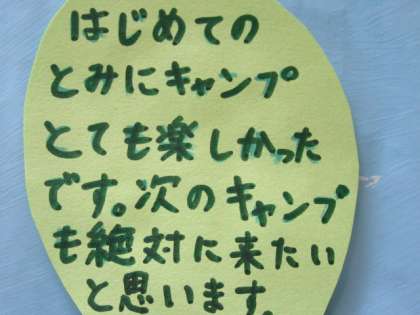 はじめての
とみにキャンプ
とても楽しかった
です。次のキャンプ
も絶対に来たい
と思います。